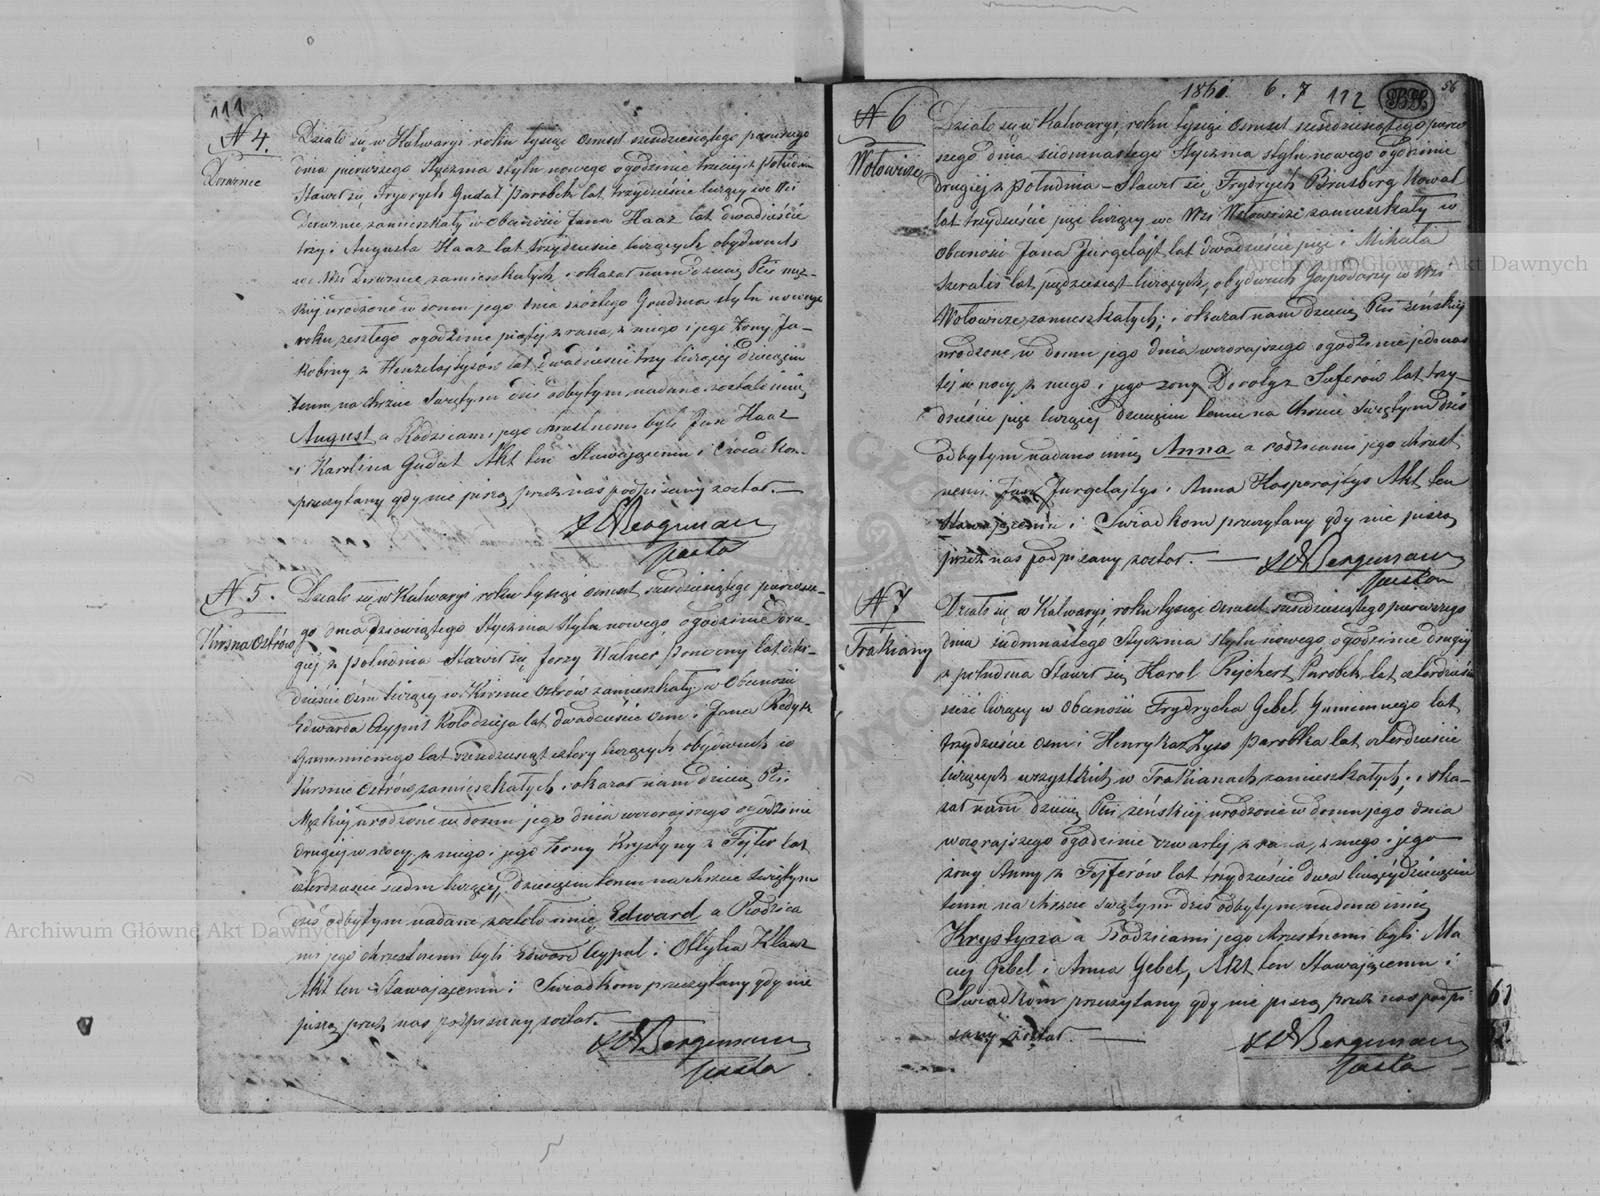 111
N 4.
Działo się w Kalwaryi roku tysiąc ośmset sześdziesiątego pierwszego
dnia pierwszego Stycznia stylu nowego o godzinie trzeciej z południa
Stawił się Frydrych Gudat parobek lat trzydzieście liczący we Wsi
zamieszkały w obecności Jana Haaz lat dwadzieście
trzy i Augusta Haaz lat trzydzieście liczących obydwuch
we Wsi zamieszkałych, i okazał nam dziecię Płci męz-
kiej urodzone w domu jego dnia szóstego Grudnia stylu nowego
roku zeszłego o godzinie piątej z rana, z niego i jego Żony Ja-
kobiny z lat dwadzieście trzy liczącej Dziecięciu
temu na chrzcie Świętym dziś odbytym nadane zostało imię
August a Rodzicami jego chrestnemi byli Jan Haaz
i Karolina Gudat Akt ten Stawającemu i Świadkom
przeczytany gdy nie piszą przez nas podpisany został. —
Bergemann
Pastor
N 5.
Kirsna Ostrów
Działo się w Kalwaryi roku tysiąc ośmset sześdziesiątego pierwsze-
go dnia dziewiątego Stycznia stylu nowego o godzinie dru-
giej z południa Stawił się Jerzy Walner lat czter-
dzieście ośm liczący w Kirsnie Ostrów zamieszkały, w obecności
Edwarda Cypul Kołodzieja lat dwadzieście ośm i Jana
Gumiennego lat cztery liczących obydwuch w
Kirsnie Ostrów zamieszkałych i okazał nam dziecię Płci
Męzkiej urodzone w domu jego dnia wczorajszego o godzinie
drugiej w nocy, z niego i jego Żony Krystyny z lat
czterdzieście siedm liczącej, Dziecięciu temu na chrzcie Świętym
dziś odbytym nadane zostało imię Edward a Rodzica
mi jego chrzestnemi byli Edward Cypul i Ottylia
Akt ten Stawającemu i Świadkom przeczytany gdy nie
piszą przez nas podpisany został.
Bergemann
Pastor
1861. 6. 7 112 56
N 6
Wołowicze
Działo się w Kalwaryi, roku tysiąc ośmset sześdziesiątego pierw
szego dnia siedmnastego Stycznia stylu nowego o godzinie
drugiej z południa – Stawił się, Frydrych Kowal
lat trzydzieście pięć liczący we Wsi Wołowicze zamieszkały w
obecności Jana Jurgelajt lat dwadzieście pięć i Mikuła
lat pięćdziesiąt liczących, obydwuch Gospodarzy w Wsi
Wołowicze zamieszkałych; i okazał nam dziecię Płci żeńskiej
urodzone w domu jego dnia wczorajszego o godzinie jedenas
tej w nocy z niego i jego żony Doroty z lat trzy-
dzieście pięć liczącej dziecięciu temu na Chrzcie Świętym dziś
odbytym nadano imię Anna a rodzicami jego chrzest
nemi Jan Jurgelajtys i Anna Kasperajtys Akt ten
Stawającemu i Świadkom przeczytany gdy nie piszą
przez nas podpisany został. —
Bergemann
Pastor
N 7
Trakiany
Działo się w Kalwaryi, roku tysiąc ośmset sześdziesiątego pierwszego
dnia siedmnastego Stycznia stylu nowego o godzinie drugiej
z południa Stawił się Karol Rejchert Parobek lat czterdzieście
sześć liczący w obecności Frydrycha Gebel Gumiennego lat
trzydzieście ośm i Henryka parobka lat czterdzieście
liczących wszystkich w Trakianach zamieszkałych; i oka-
zał nam dziecię Płci żeńskiej urodzone w domu jego dnia
wczorajszego o godzinie czwartej z rana, z niego i jego
żony Anny z Fejferów lat trzydzieście dwa liczącej dziecięciu
temu na chrzcie Świętym dziś odbytym nadano imię
Krystyna a Rodzicami jego chrzestnemi byli Ma
ciej Gebel i Anna Gebel, Akt ten Stawającemu i
Świadkom przeczytany gdy nie piszą przez nas podpi
sany został. —
Bergemann
Pastor
Archiwum Główne Akt Dawnych
Archiwum Główne Akt Dawnych